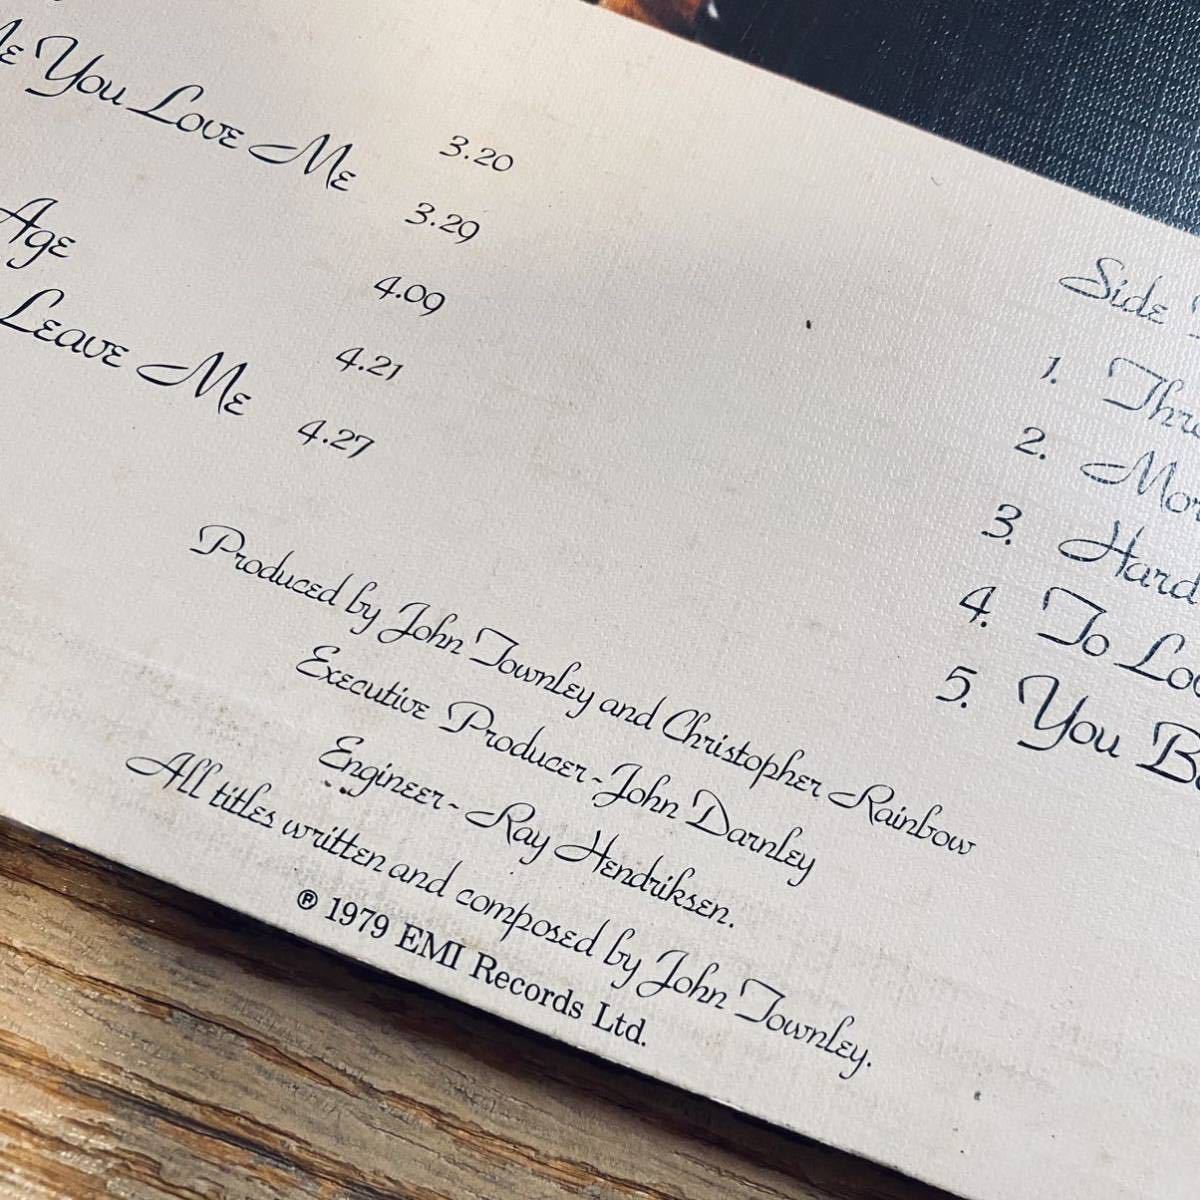 You Love Me 3.20
3.29
Age 4.09
4.21
Leave Me 4.27
Side
1.
2.
3. Hard
4. To
5. You
Produced by John Townley and Christopher Rainbow
Executive Producer - John Darnley
Engineer - Ray Hendriksen.
All titles written and composed by John Townley.
℗ 1979 EMI Records Ltd.